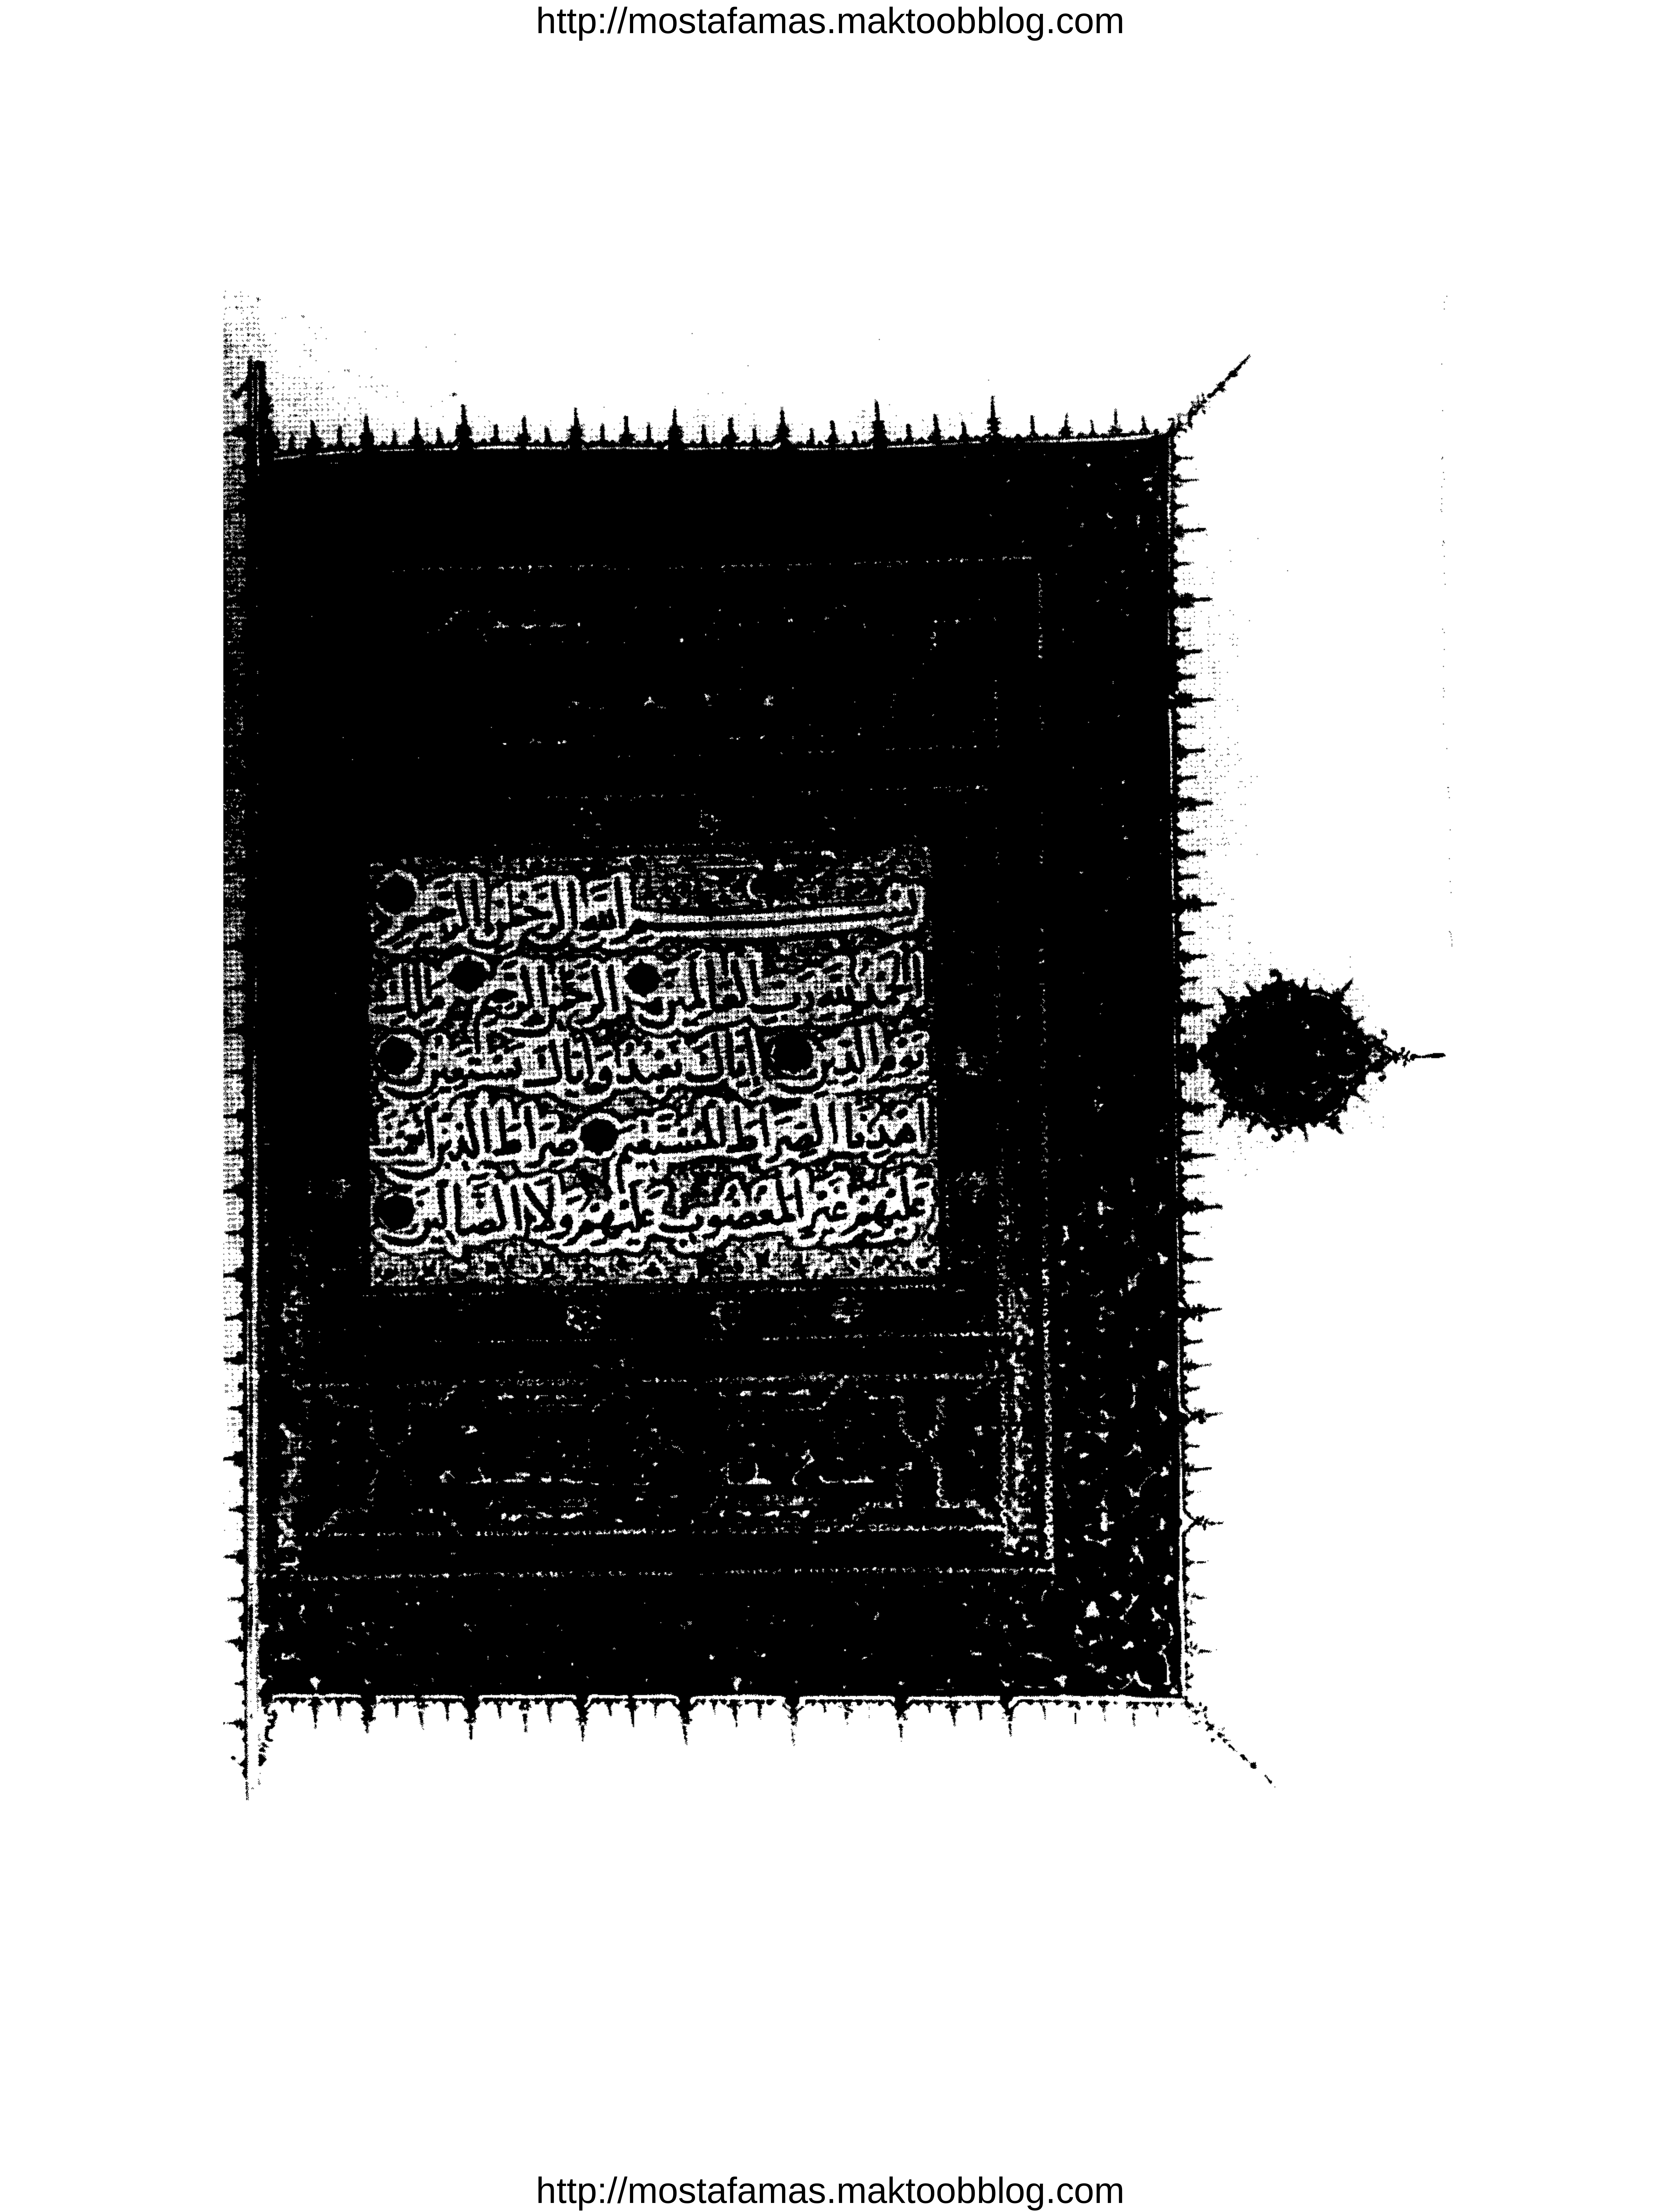 http://mostafamas.maktoobblog.com
بسم الله الرحمن الرحيم
الحمد لله رب العالمين الرحمن الرحيم مالك
يوم الدين إياك نعبد وإياك نستعين
اهدنا الصراط المستقيم صراط الذين أنعمت
عليهم غير المغضوب عليهم ولا الضالين
http://mostafamas.maktoobblog.com